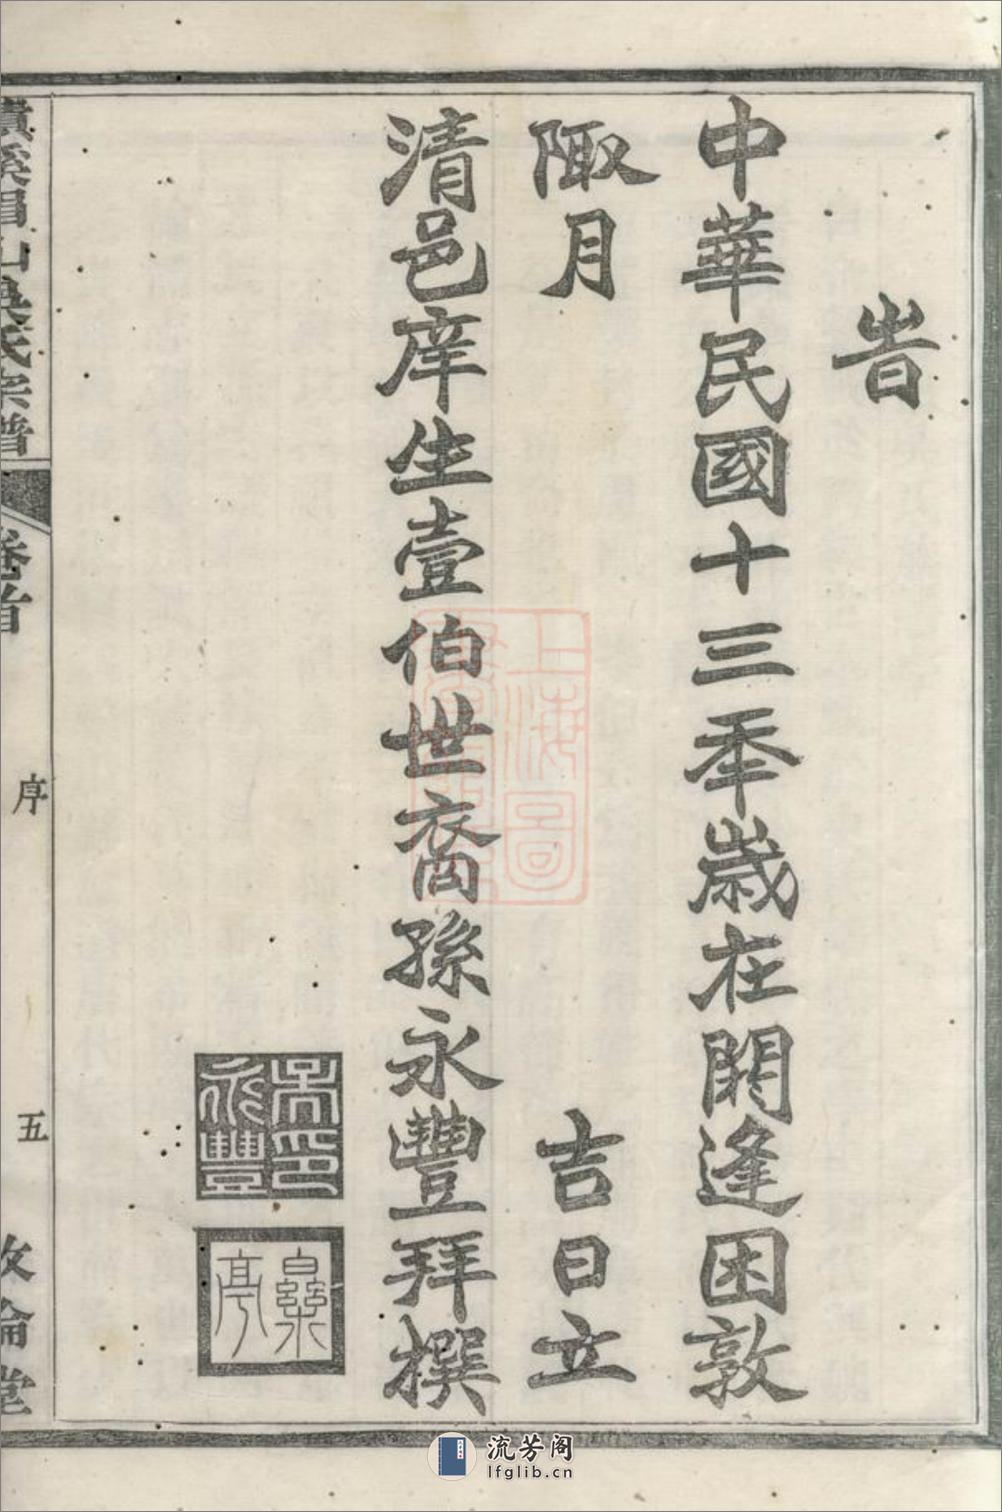 旹
中華民國十三秊歲在閼逢困敦
陬月 吉日立
清邑庠生壹伯世裔孫永豐拜撰
吳印永豐
樂亭
山吳氏宗譜
卷首
序
五
倫堂
上海圖書館藏
流芳阁
lfglib.cn